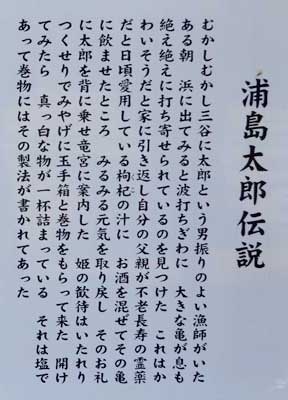 浦島太郎伝説
むかしむかし三谷に太郎という男振りのよい漁師がいた
ある朝　浜に出てみると波打ちぎわに　大きな亀が息も
絶え絶えに打ち寄せられているのを見つけた　これはか
わいそうだと家に引き返し自分の父親が不老長寿の霊薬
だと日頃愛用している枸杞の汁に　お酒を混ぜてその亀
に飲ませたところ　みるみる元気を取り戻し　そのお礼
に太郎を背に乗せ竜宮に案内した　姫の歓待はいたれり
つくせりでみやげに玉手箱と巻物をもらって来た　開け
てみたら　真っ白な物が一杯詰まっている　それは塩で
あって巻物にはその製法が書かれてあった